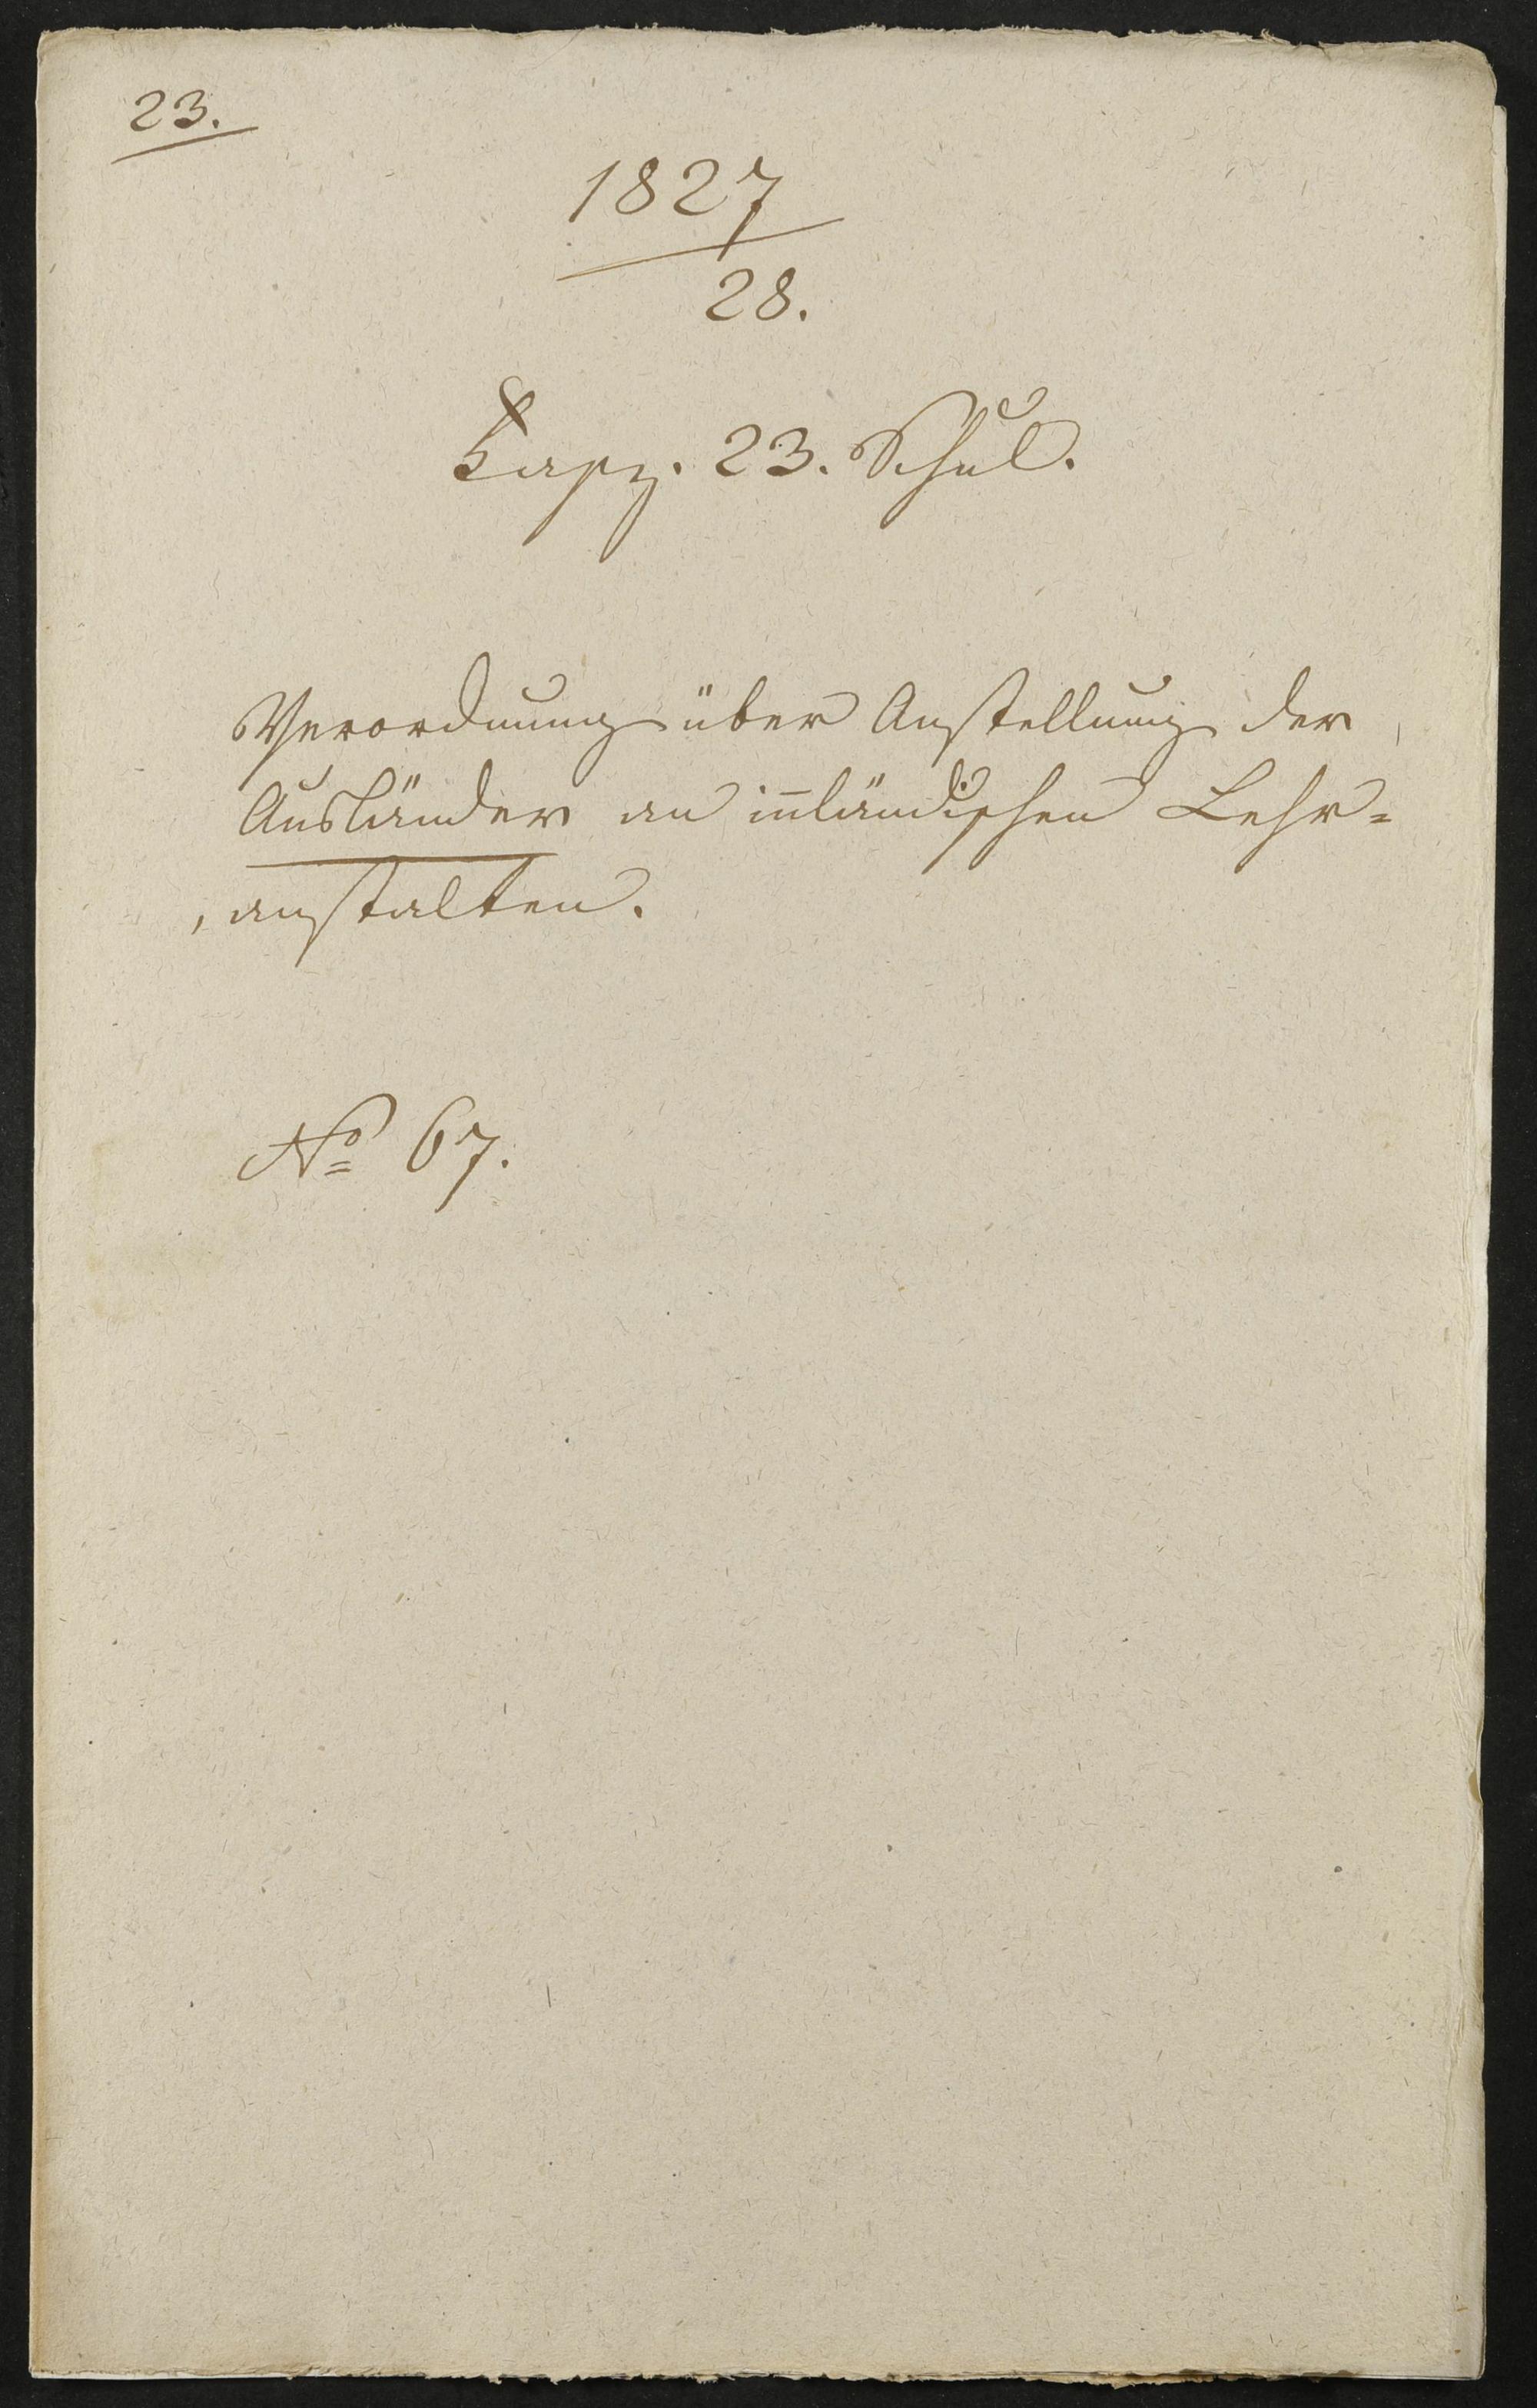 23.
1827
28.
Fasz. 23. Schul.
Verordnung über Anstellung der
Ausländer an inländischen Lehr=
anstalten.
No 67.